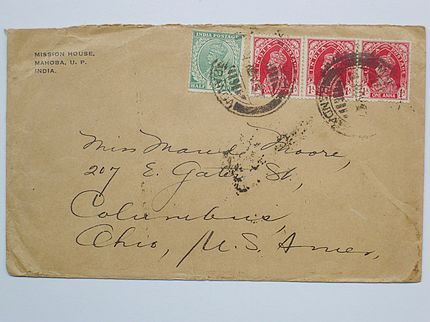 MISSION HOUSE,
MAHOBA, U. P.
INDIA.
INDIA POSTAGE
HALF
ONE ANNA
Miss Maude Moore,
207 E. Gates St,
Columbus,
Ohio, U.S. Amer,